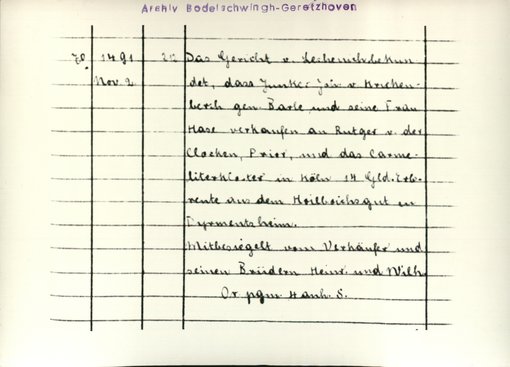 Archiv Bodelschwingh-Geretzhoven
70. 1491 Das Gericht v. Lechenich bekun-
Nov. 2 det, dass Junker v. Krieken-
berch gen. Barle und seine Frau
Hase verkaufen an Rutger v. der
Clocken, Prior, und das Carme-
literkloster in Köln 14 Gld. Erb-
rente aus dem gut in
Dyrmentsheim.
Mitbesiegelt vom Verkäufer und
seinen Brüdern Heinr. und Wilh.
Or. pgm. 4 anh. S.